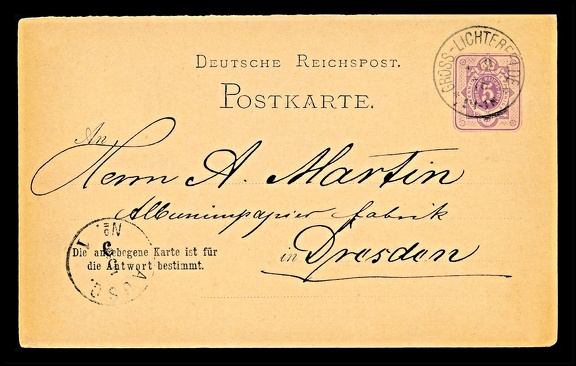 DEUTSCHE REICHSPOST.
POSTKARTE.
GROSS-LICHTERFELDE
5
An
Herrn A. Martin
Albuminpapier Fabrik
in Dresden
Die angebogene Karte ist für
die Antwort bestimmt.
AUSG.